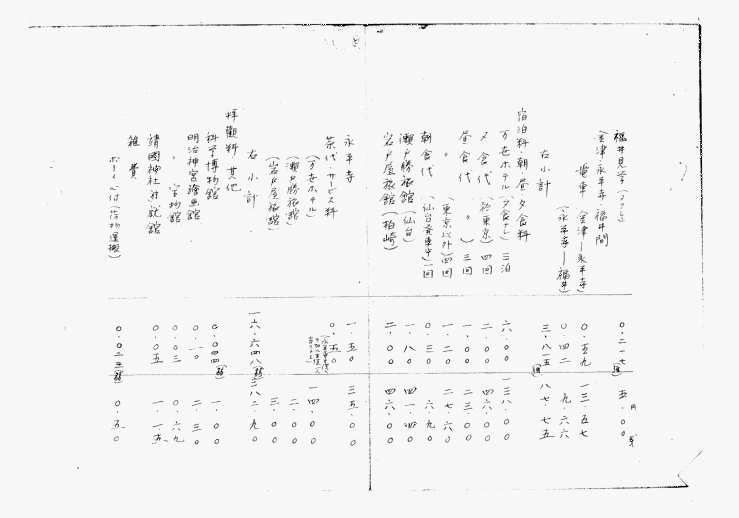 福井見学(バス) 〇・二一七(強) 五・〇〇
金津・永平寺・福井間
電車(金津―永平寺) 〇・五九 一三・五七
(永平寺―福井) 〇・四二 九・六六
右小計 三・八一五(強) 八七・七五
宿泊料・朝・昼・夕食料
万世ホテル(夕食ナシ)三泊 六・〇〇 一三八・〇〇
夕食代(於東京)四回 二・〇〇 四六・〇〇
昼食代(〃)三回 一・〇〇 二三・〇〇
〃(東京以外)四回 一・二〇 二七・六〇
朝食代(仙台発車中)一回 〇・三〇 六・九〇
瀬戸勝旅館(仙台) 一・八〇 四一・四〇
岩戸屋旅館(柏崎) 二・〇〇 四六・〇〇
永平寺 一・五〇 三五・〇〇
茶代・サービス料 〇・五〇
(万世ホテル) 一四・〇〇
(瀬戸勝旅館) 二・〇〇
(岩戸屋旅館) 三・〇〇
右小計 一六・六四八(弱) 三八二・九〇
拝観料其他
科学博物館 〇・〇四四(弱) 一・〇〇
明治神宮繪画館 〇・一〇 二・三〇
〃宝物館 〇・〇三 〇・六九
靖國神社遊就館 〇・〇五 一・一五
雑費
ボーイ心付(荷物運搬) 〇・〇二三(弱) 〇・五〇